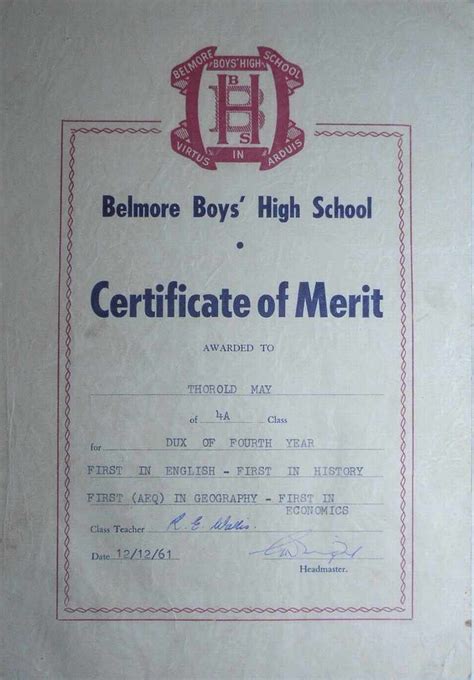 BELMORE BOYS' HIGH SCHOOL
B
H B
S
VIRTUS IN ARDUIS
Belmore Boys' High School
•
Certificate of Merit
AWARDED TO
THOROLD MAY
of 4A Class
for DUX OF FOURTH YEAR
FIRST IN ENGLISH - FIRST IN HISTORY
FIRST (AEQ) IN GEOGRAPHY - FIRST IN
ECONOMICS
Class Teacher R. E.
Date 12/12/61
Headmaster.